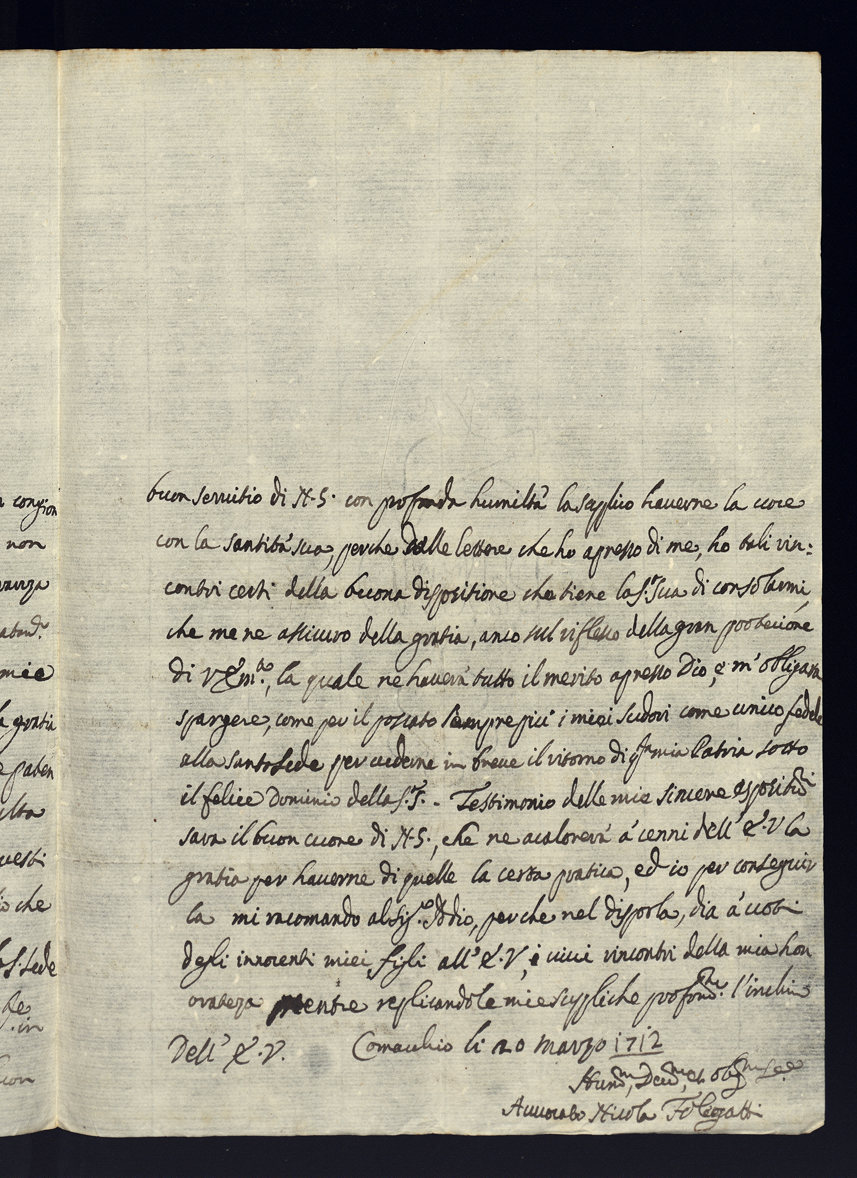 n congion
non
vanza
mie
la gratia
e paten
ulta
uesti
io che
la S. Sede
buon seruitio di N. S. con profonda humiltà la supplico hauerne la uoce
con la santità sua, perche dalle lettere che ho apresso di me, ho tali rin:
contri certi della buona dispositione che tiene la S.tà Sua di consolarmi
che me ne assicuro della gratia, anco sul riflesso della gran protecione
di V. Em.za, la quale ne hauerà tutto il merito apresso Dio, e m'obligarà
spargere, come per il passato sempre più i miei sudori come unico fedele
alla santa Sede per uederne in breue il ritorno di q.sta mia Patria sotto
il felice Dominio della S. S. - Testimonio delle mie sincere espositio.ni
sarà il buon cuore di N. S., che ne acalorerà à cenni dell' E. V. la
gratia per hauerne di quelle la certa pratica, ed io per conseguir
la mi racomando al Sig.re Iddio, perche nel disporla, dia à uoti
degli innocenti miei figli all' E. V., i uiui rincontri della mia hon
oratezza mentre replicandole mie suppliche profond.te l'inchino
Dell' E. V. Comacchio li 20 marzo 1712
Hum.mo, Deu.mo, et Obg.mo Se.e
Auuocato Nicola Folegatti